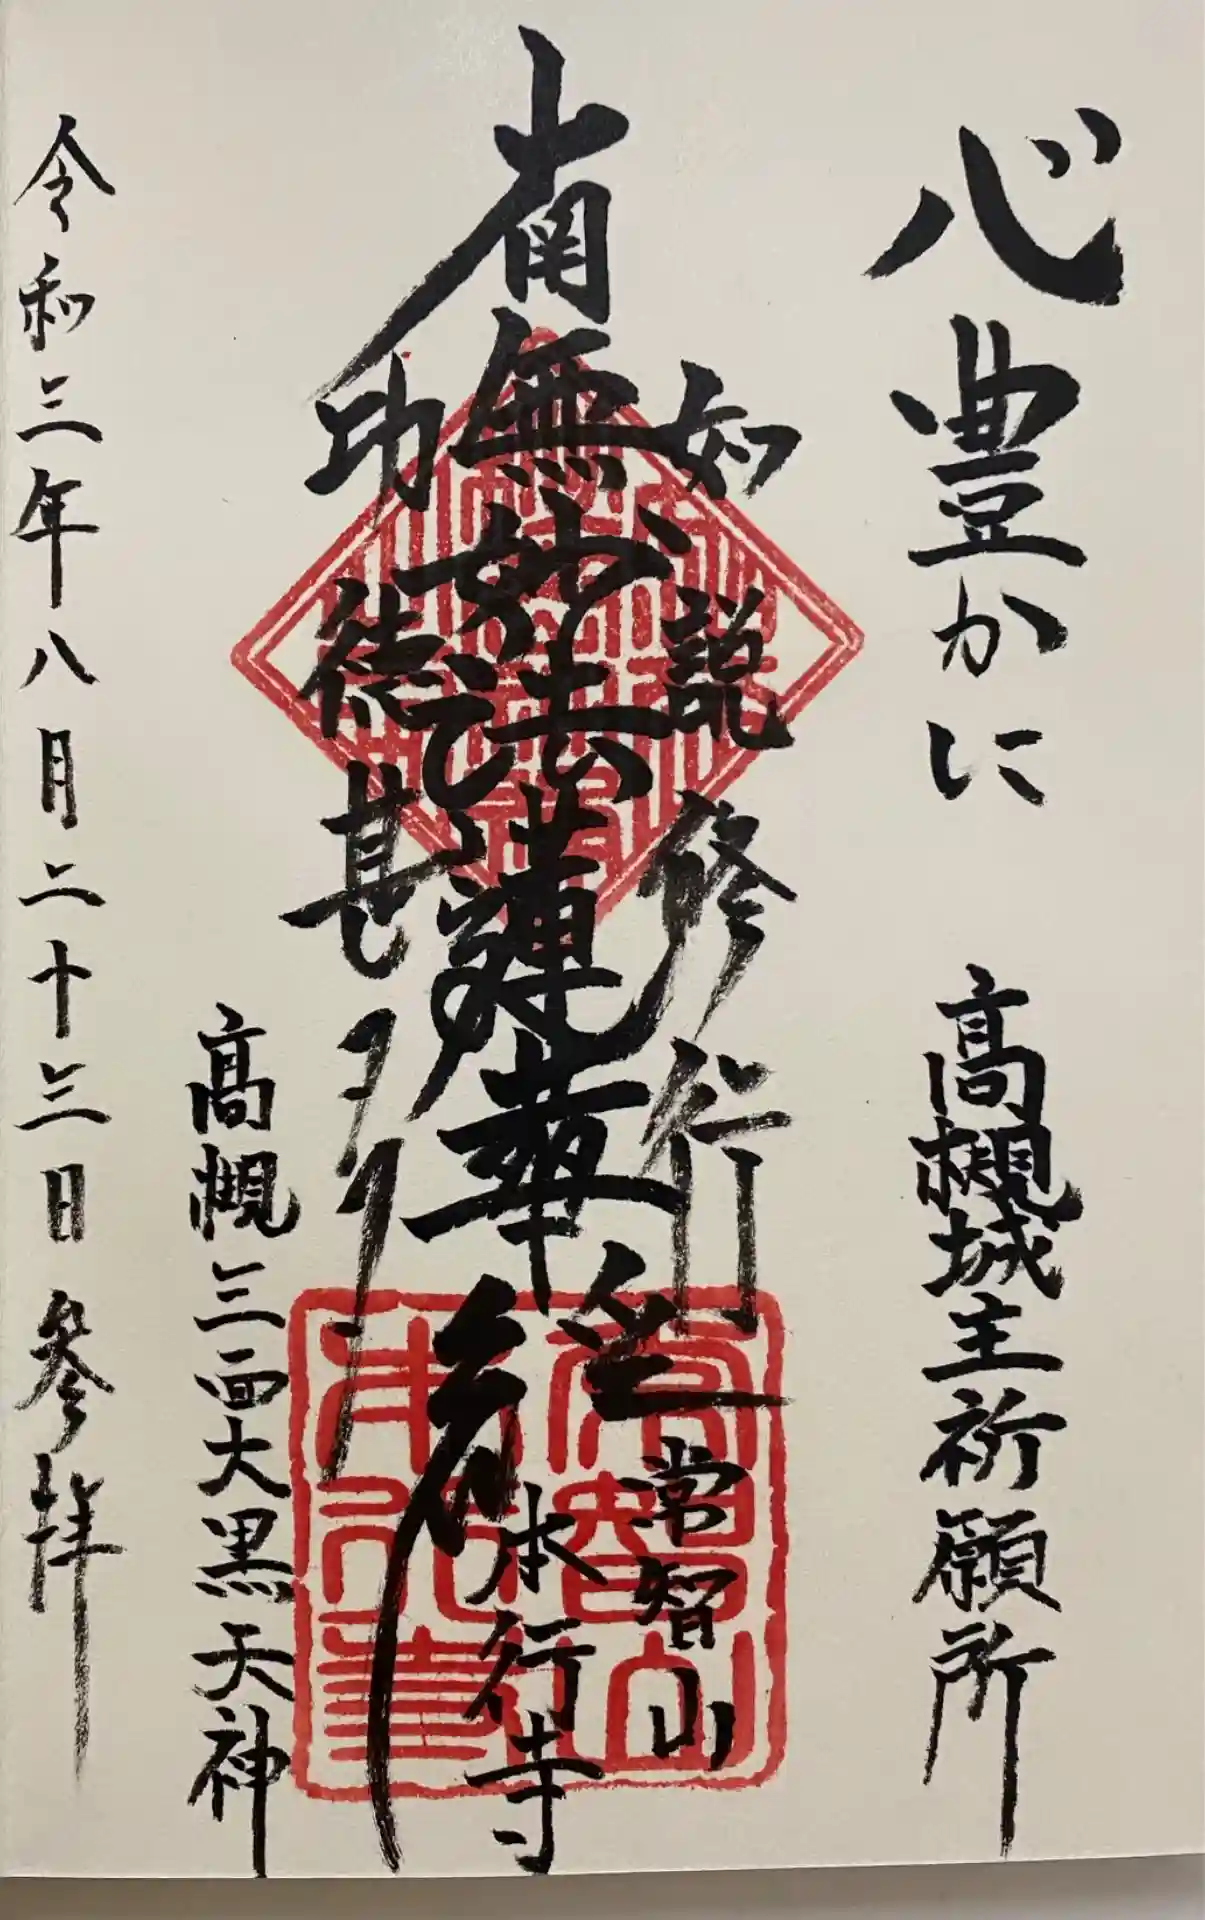 心豊かに 髙槻城主祈願所
如説修行
常智山
南無妙法蓮華経
本行寺
功徳甚多
髙槻三面大黒天神
令和三年八月二十三日参拝
常智山
本行寺